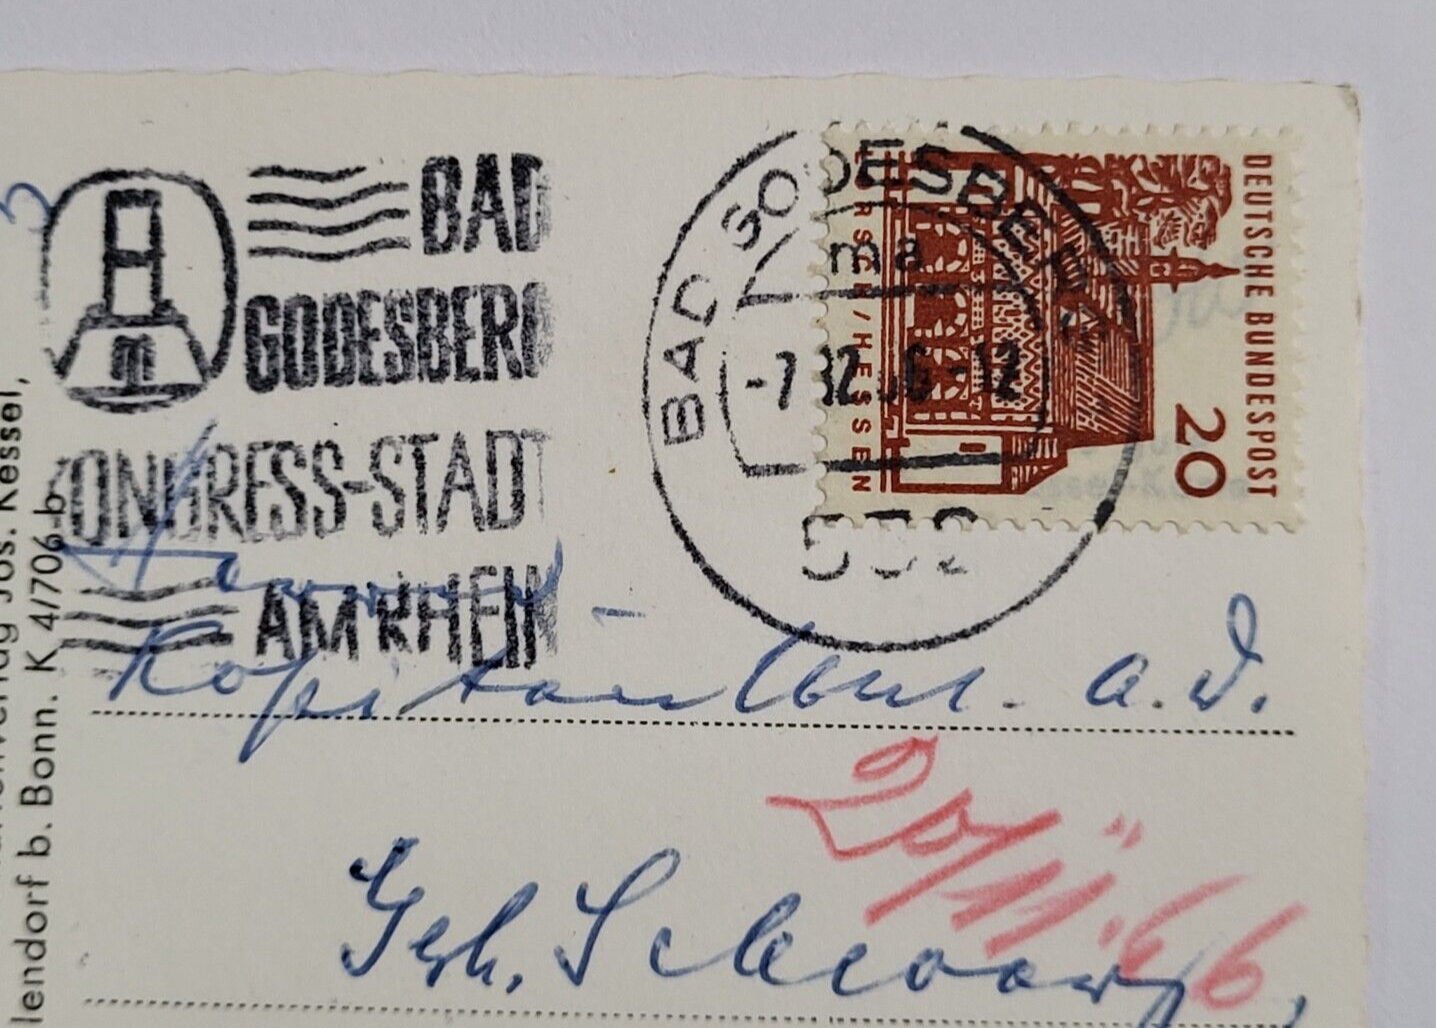 BAD
GODESBERG
KONGRESS-STADT
AM RHEIN
BAD GODESBERG
ma
-7.12.66-12
532
DEUTSCHE BUNDESPOST
20
LORSCH/HESSEN
Jos. Kessel,
lendorf b. Bonn. K 4/706 b
Herrn
Kapitänltnt. a. D.
20/11.66
Gerh. Schwarz,